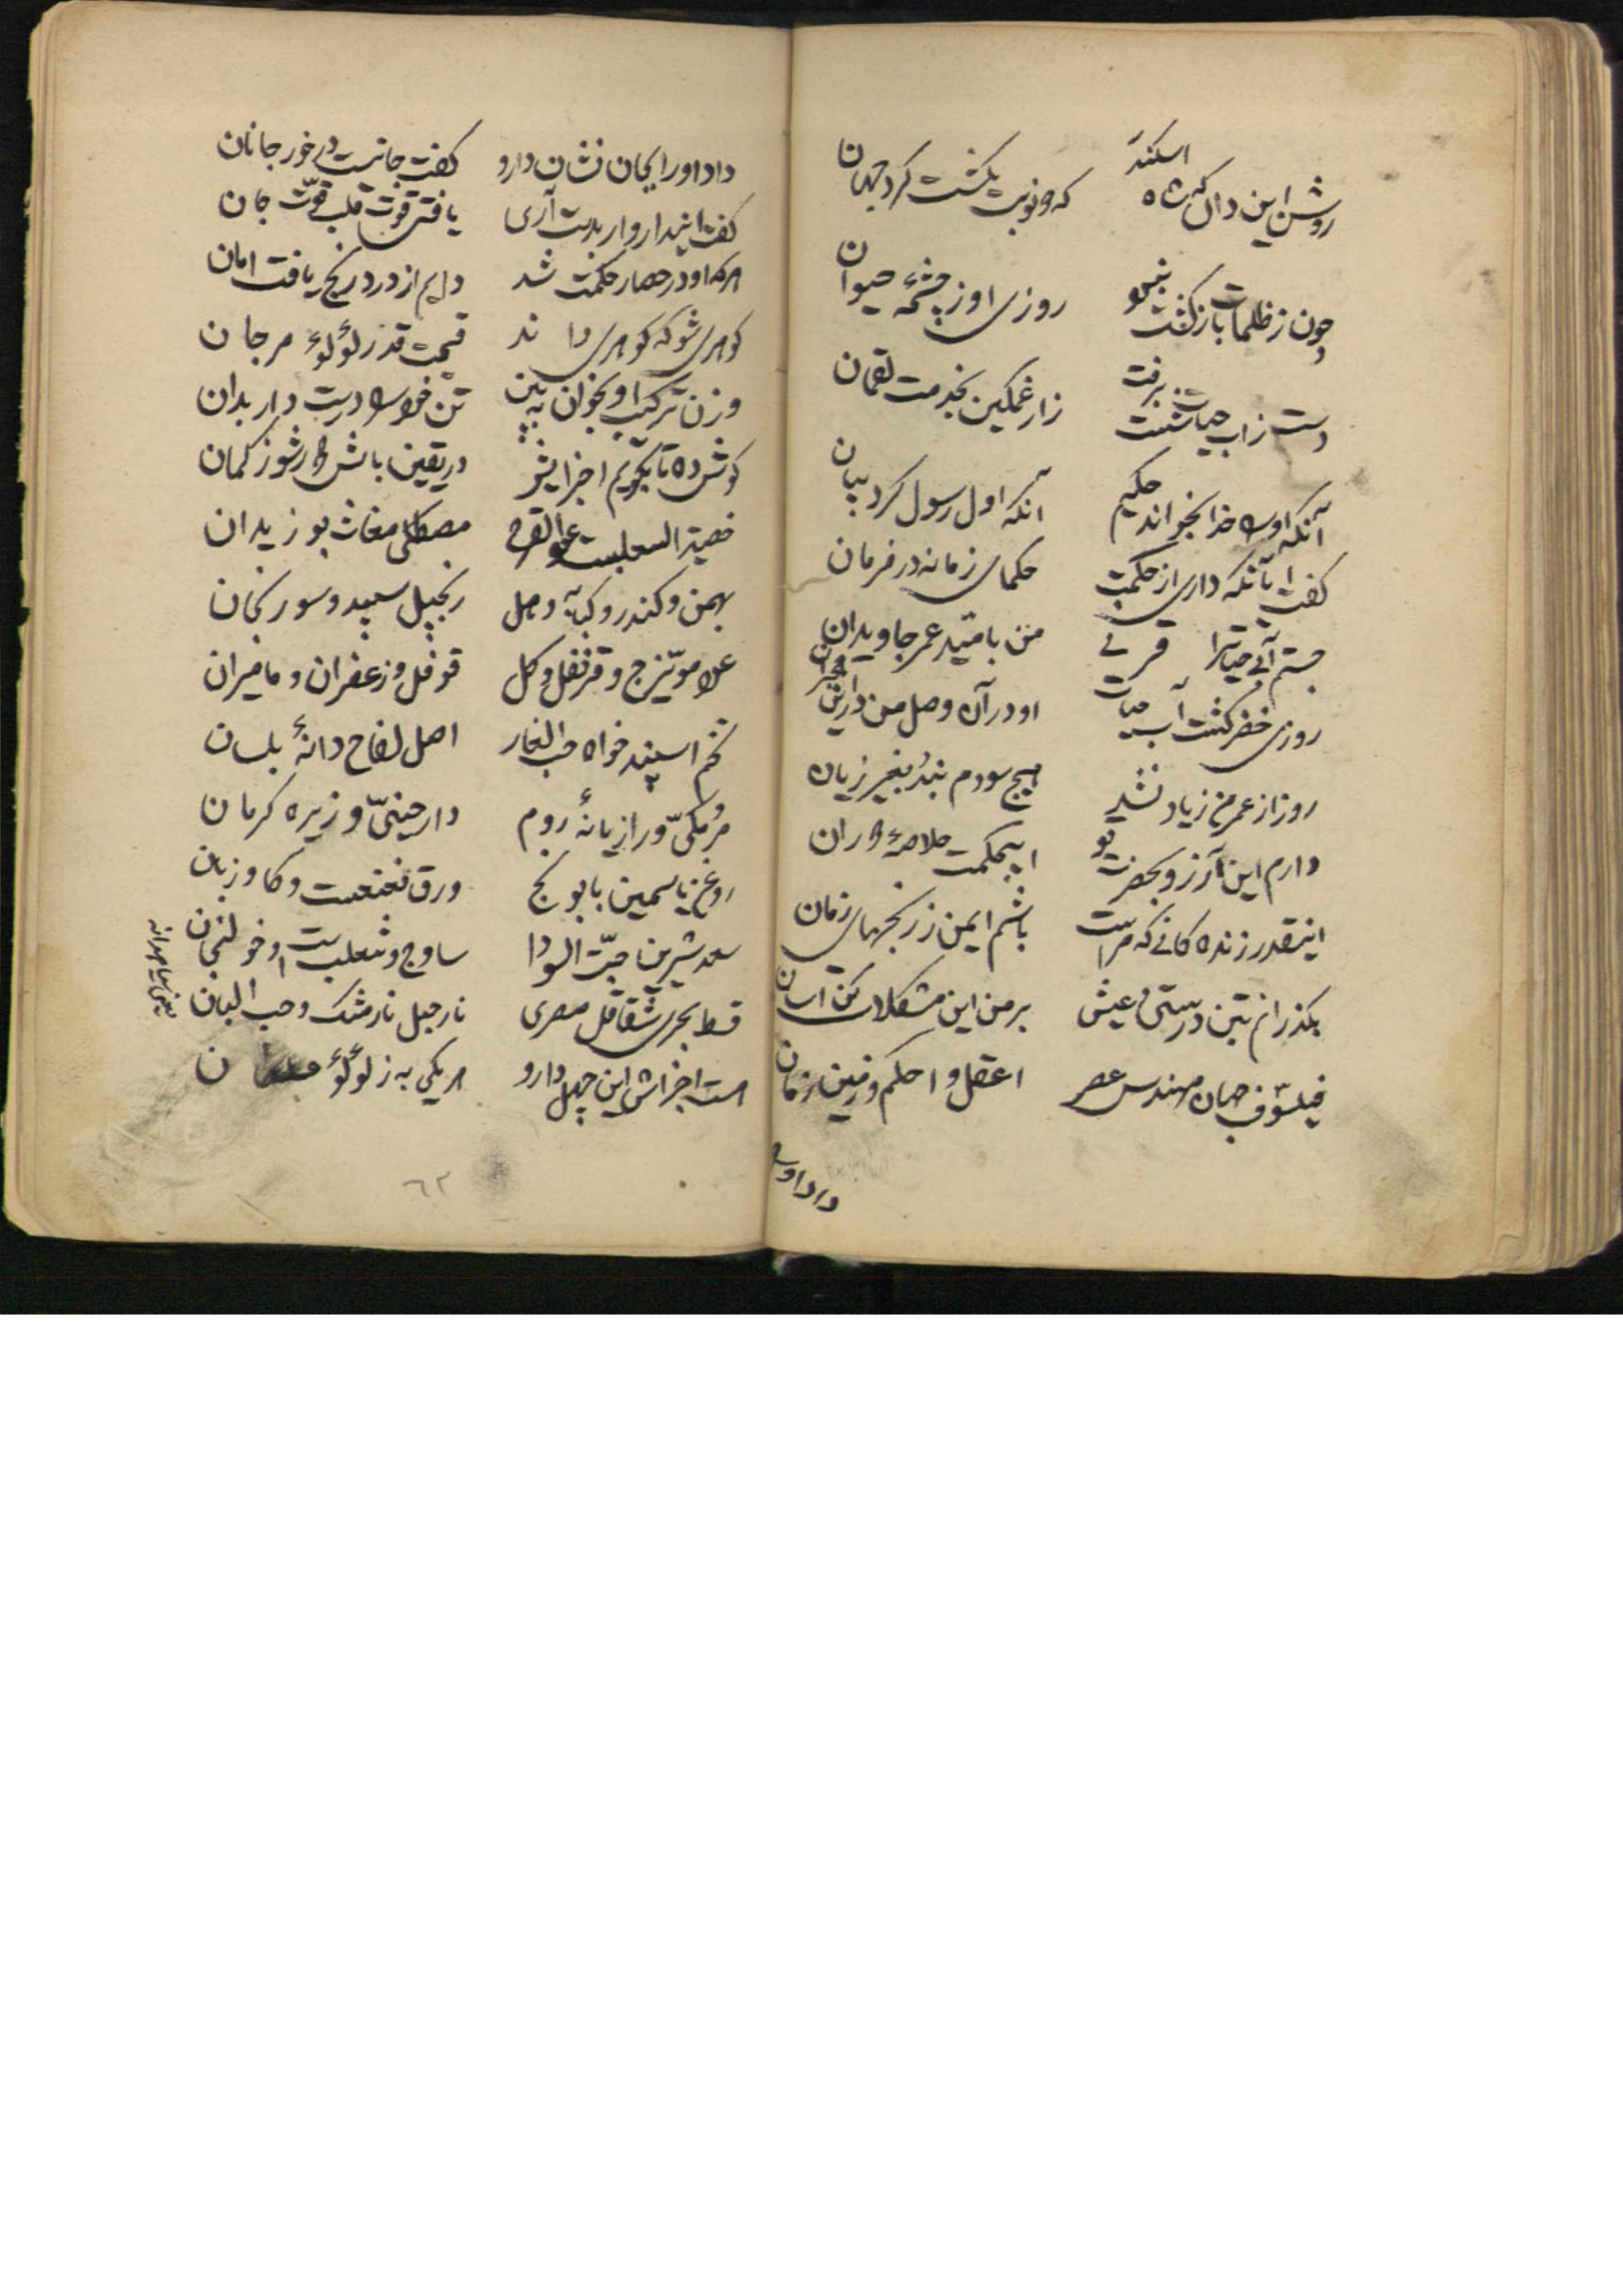 روشن این دان که شاه اسکندر
که دو نوبت بگشت گرد جهان
چون ز ظلمات بازگشت نبود
روزی او ز چشمه حیوان
دست ز اب حیات شست برفت
زار غمگین بخدمت لقمان
آنکه اورا خدا بخواند حکیم
آنکه اول رسول کرد بیان
گفت ای آنکه داری از حکمت
حکمای زمانه در فرمان
من بامید عمر جاویدان
روزی خضر گشت آب حیات
او در آن وصل من درین هجران
روز از عمر من زیاد نشد
هیچ سودم نبد بغیر زیان
دارم این آرزو بحضرت تو
ای بحکمت خلاصه دوران
اینقدر زنده کانی که مراست
باشم ایمن ز رنجهای زمان
بگذرانم بتن درستی و عیش
بر من این مشکلات کن آسان
فیلسوف جهان مهندس عصر
اعقل و احکم زمین و زمان
داد اورا
داد اورا یکان نشان دارو
گفت جانیست در خور جانان
گفت این دارو ار بدست آری
یافتی قوت قلب قوّت جان
هرکه او در حصار حکمت شد
دایم از درد و رنج یافت امان
گوهری شو که گوهری داند
قیمت قدر لؤلؤ مرجان
وزن ترکیب او بخوان به بین
تن خودرا درست دار بدان
گوش ده تا بگویم اجزایش
در یقین باش دور شو ز گمان
خصیة الثعلبست عود القرح
مصطکی مغاث بوزیدان
بهمن و کندر و کبابه و هیل
زنجبیل سپید و سورنجان
قرنفل و گل
فوفل و زعفران و مامیران
تخم اسپند خواه حب الغار
اصل لفاح دانهٔ بلسان
مر مکیّ و رازیانهٔ روم
دارچینیّ و زیره کرمان
روغن یاسمین بابونج
ورق نعنعست و گاوزبان
سعد شیرین حبّة السودا
ساوج و ثعلب است و خولنجان
قسط بحری شقاقل مصری
نارجیل نارمشک و حب البان
هست اجزاش این چهل دارو
هر یکی به ز لؤلؤ
٦٢